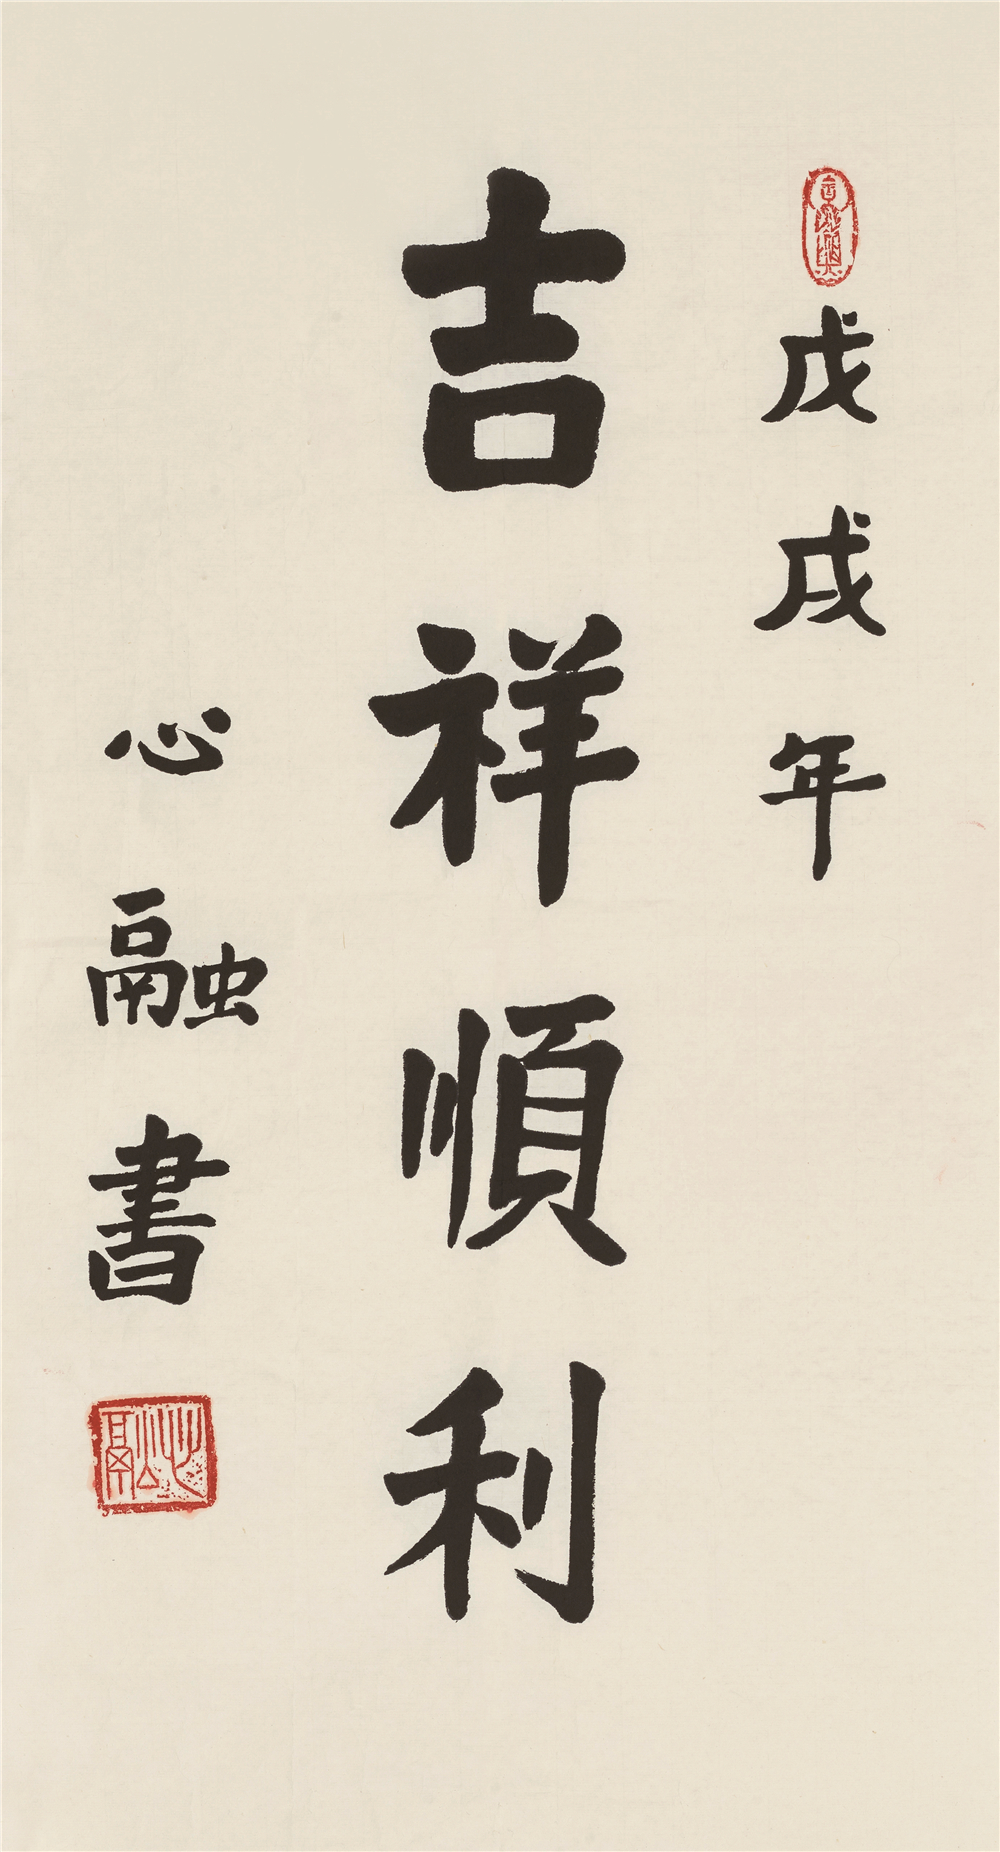 戊戌年
吉祥順利
心融書
心融